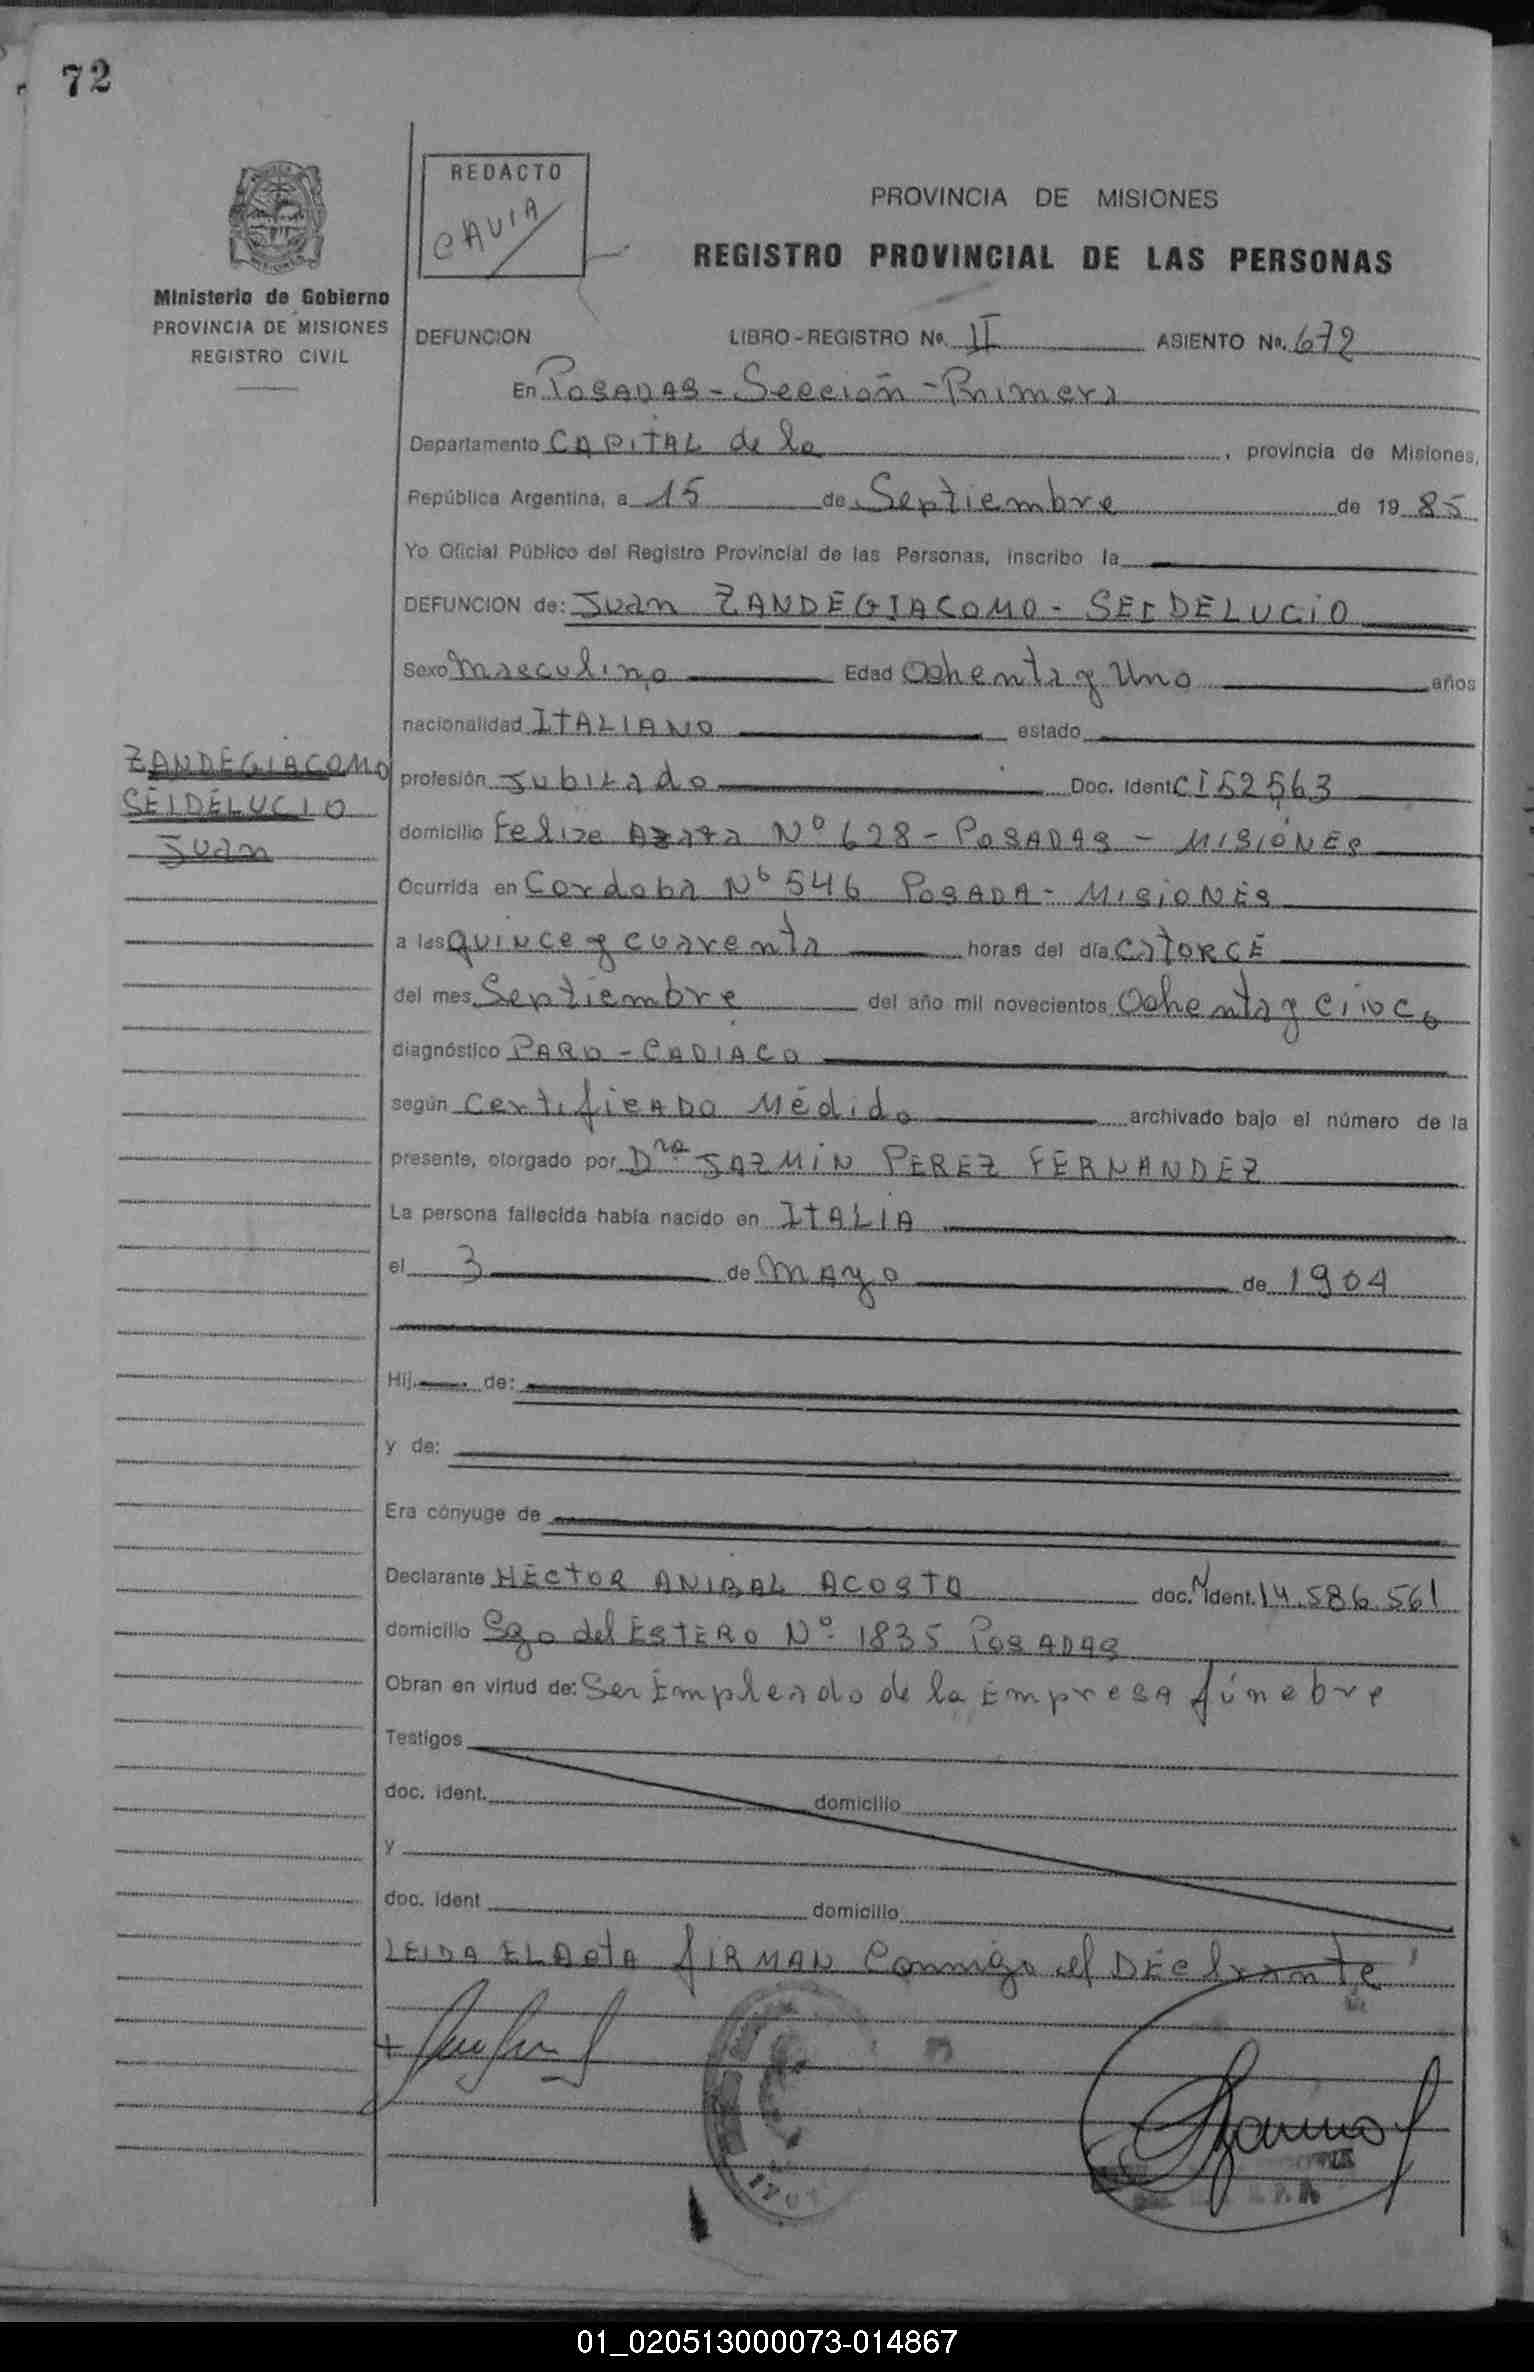 72
REDACTO
CAVIA
PROVINCIA DE MISIONES
REGISTRO PROVINCIAL DE LAS PERSONAS
Ministerio de Gobierno
PROVINCIA DE MISIONES
REGISTRO CIVIL
DEFUNCION LIBRO-REGISTRO No. II ASIENTO No. 672
En POSADAS - Sección - Primera
Departamento CAPITAL de la , provincia de Misiones,
República Argentina, a 15 de Septiembre de 19 85
Yo Oficial Público del Registro Provincial de las Personas, inscribo la
DEFUNCION de: Juan ZANDEGIACOMO - SEIDELUCIO
Sexo Masculino Edad Ochenta y Uno años
nacionalidad ITALIANO estado
ZANDEGIACOMO
SEIDELUCIO
Juan
profesión Jubilado Doc. Ident CI 52563
domicilio Felize Azara Nº 628 - POSADAS - MISIONES
Ocurrida en Cordoba Nº 546 POSADA - MISIONES
a las QUINCE y cuarenta horas del día CATORCE
del mes Septiembre del año mil novecientos Ochenta y CINCO
diagnóstico PARO - CADIACO
según Certificado Médido archivado bajo el número de la
presente, otorgado por Dra JAZMIN PEREZ FERNANDEZ
La persona fallecida había nacido en ITALIA
el 3 de MAYO de 1904
Hij de:
y de:
Era cónyuge de
Declarante HECTOR ANIBAL ACOSTA doc. N ident. 14.586.561
domicilio Sgo del ESTERO Nº 1835 POSADAS
Obran en virtud de: Ser Empleado de la Empresa fúnebre
Testigos
doc. ident. domicilio
y
doc. ident domicilio
LEIDA EL ACTA FIRMAN Conmigo el DEClarante
01_020513000073-014867